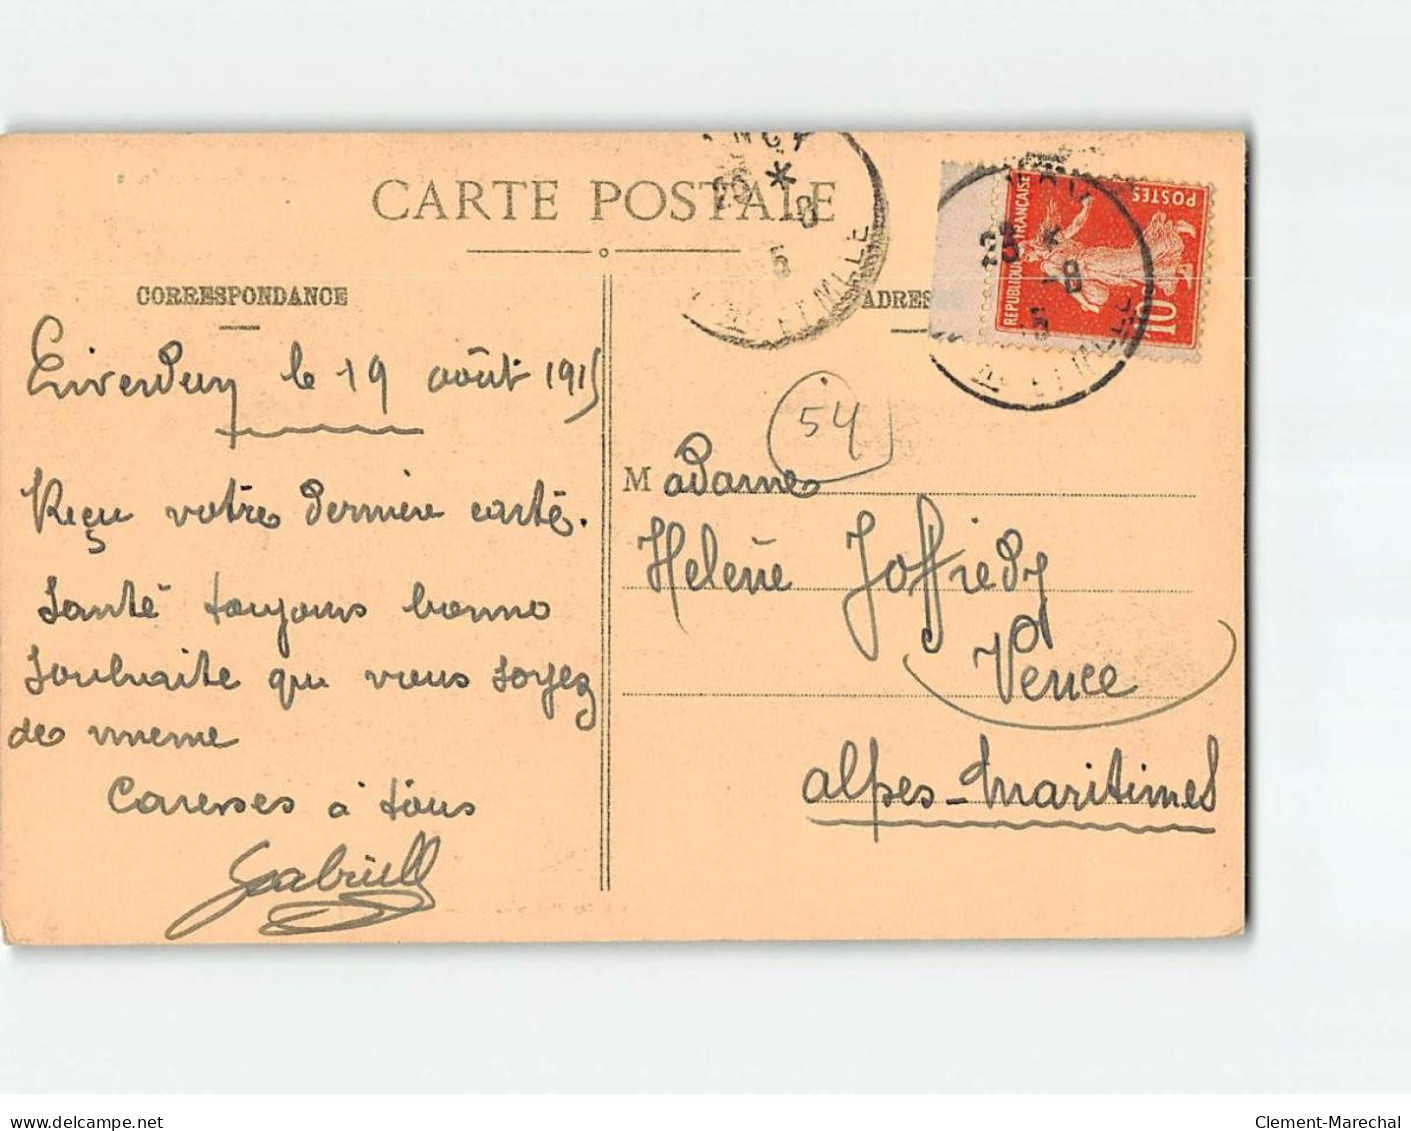 CARTE POSTALE
CORRESPONDANCE
le 19 août 1915
Reçu votre dernière carte.
Santé toujours bonne
Souhaite que vous soyez
de meme
Caresses à tous
Gabriell
ADRESSE
54
Madame
Helène Joffredy
Vence
Alpes-Maritimes
POSTES
REPUBLIQUE FRANÇAISE
10
ET MLLE
ET MLLE
delcampe.net
Clement-Marechal